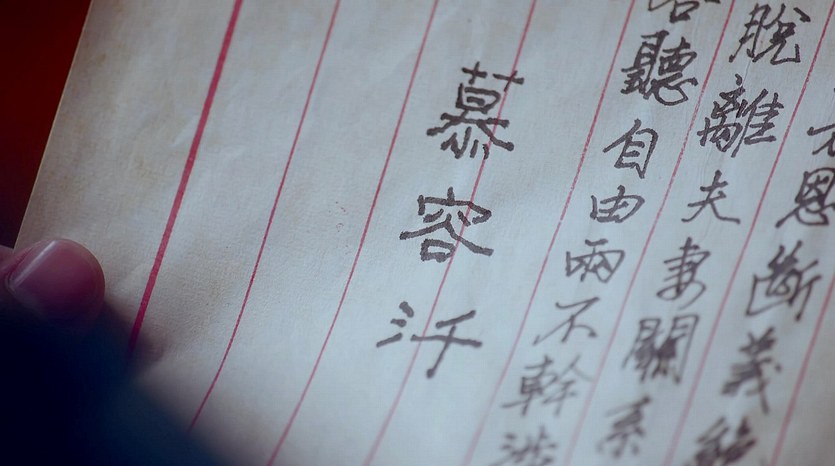 恩斷義絕
脫離夫妻關系
各聽自由兩不幹涉
慕容汘